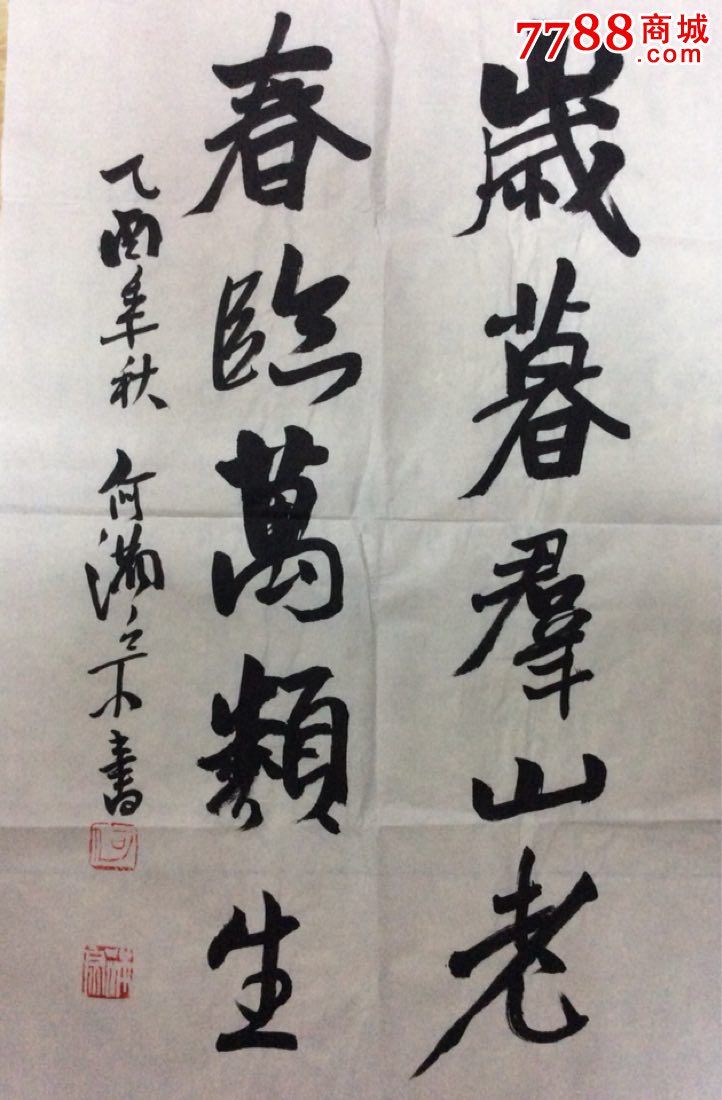 7788商城
.com
歲暮羣山老
春臨萬類生
乙酉年秋 何滿宗書